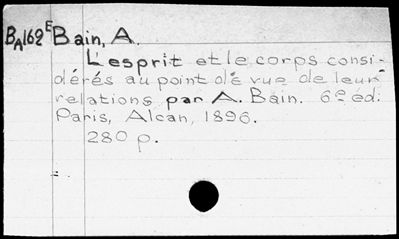 BA162E Bain, A.
L'esprit et le corps consi-
dérés au point de vue de leurs
relations par A. Bain. 6e éd.
Paris, Alcan, 1896.
280 p.